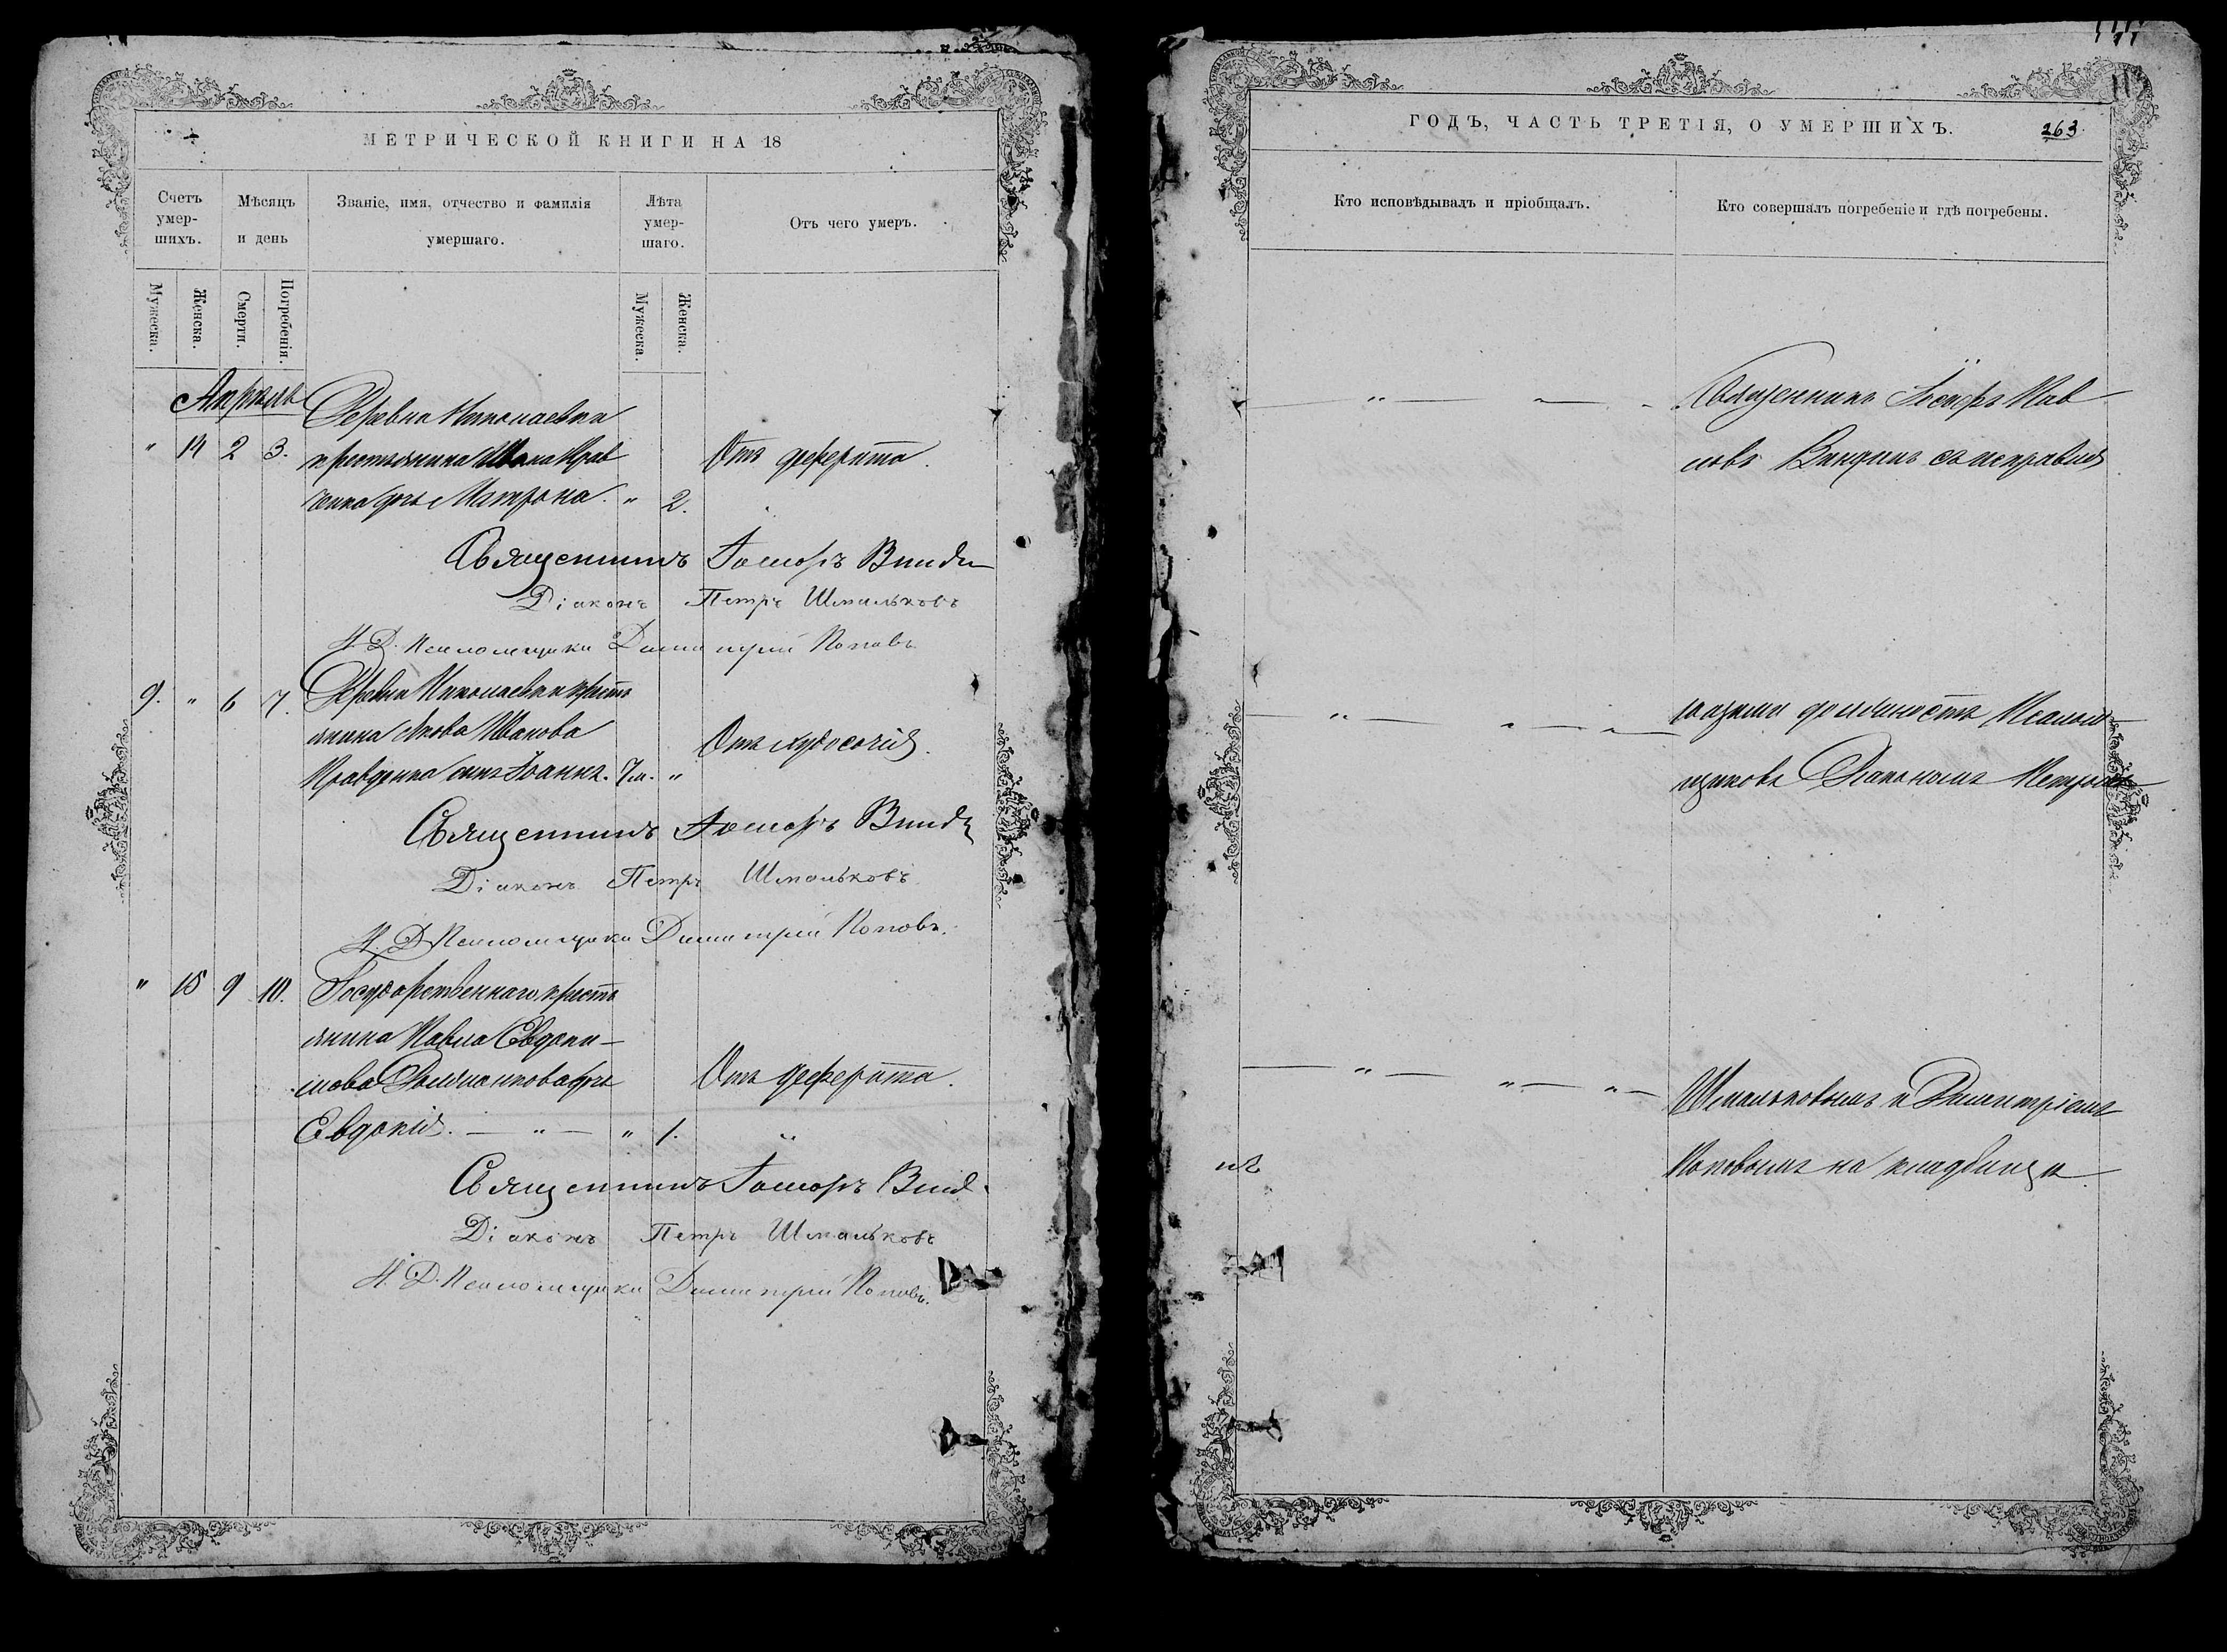 МЕТРИЧЕСКОЙ КНИГИ НА 18
Счетъ умер- шихъ.
Мѣсяцъ и день
Званіе, имя, отчество и фамилія умершаго.
Лѣта умер- шаго.
Отъ чего умеръ.
Мужеска.
Женска.
Смерти.
Погребенія.
Мужеска.
Женска.
Апрѣль
Деревни Николаевки
" 14 2 3. крестьянина Крав Отъ дефферита.
ченка дочь Матрона. " 2.
Священникъ
Діаконъ Петръ Шмальковъ
И. Д. Псаломщика Димитрій Поповъ
9. " 6 7. Деревни Николаевки кресть
янина Якова Иванова Отъ худосочія.
Кравченка сынъ Іоаннъ. 7м. "
Священникъ
Діаконъ Петръ Шмальковъ
И. Д. Псаломщика Димитрій Поповъ.
" 15 9 10. Государственнаго кресть
янина Павла Евдоки-
мова дочь Отъ дефферита.
Евдокія. — " — " 1. "
Священникъ
Діаконъ Петръ Шмальковъ
И. Д. Псаломщика Димитрій Поповъ.
ГОДЪ, ЧАСТЬ ТРЕТІЯ, О УМЕРШИХЪ.
263
Кто исповѣдывалъ и пріобщалъ.
Кто совершалъ погребеніе и гдѣ погребены.
Священникъ
съ исправля
ющими должность Псалом
щиковъ Діакономъ Петромъ
Шмальковымъ и Димитріемъ
Поповымъ на кладбищѣ.